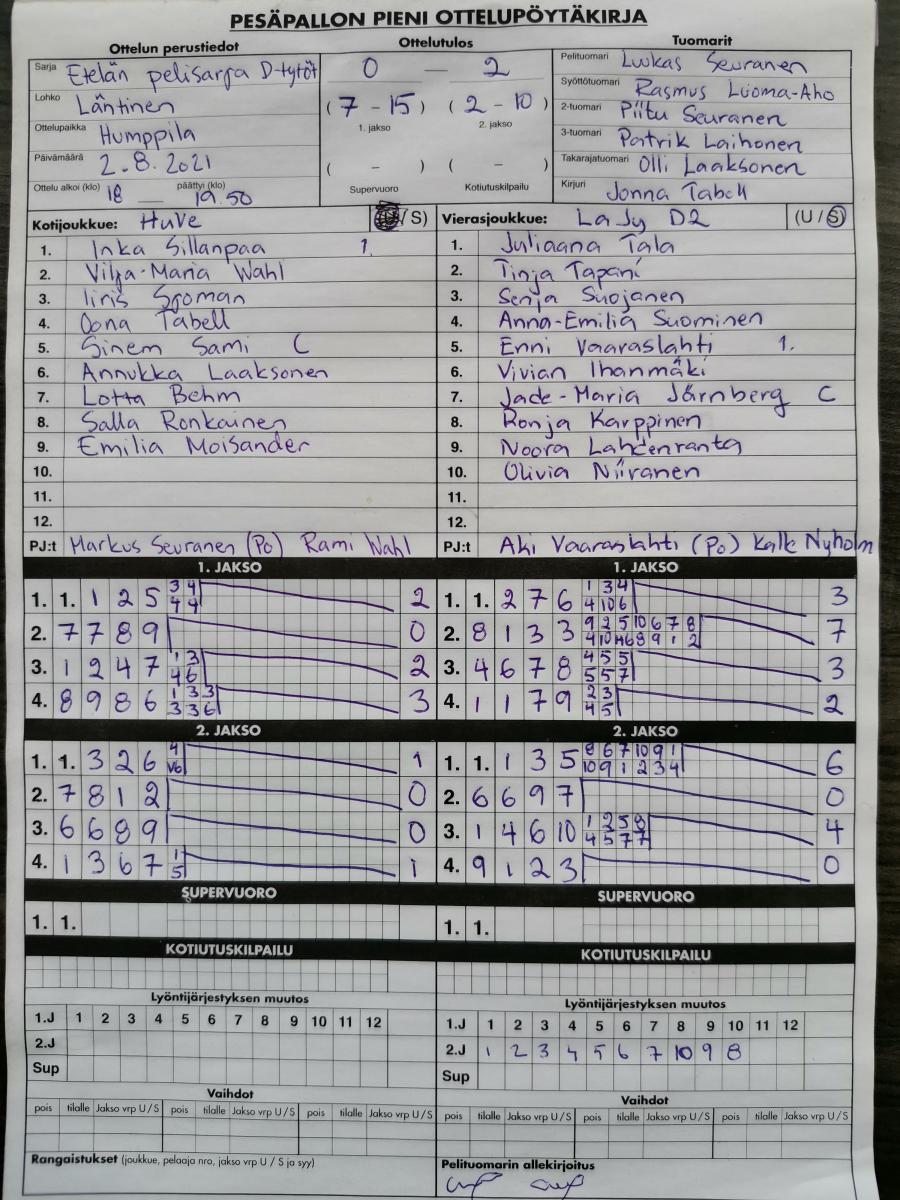 PESÄPALLON PIENI OTTELUPÖYTÄKIRJA
Ottelun perustiedot
Sarja Etelän pelisarja D-tytöt
Lohko Läntinen
Ottelupaikka Humppila
Päivämäärä 2.8.2021
Ottelu alkoi (klo) 18 päättyi (klo) 19.50
Ottelutulos
0 — 2
(7 - 15) (2 - 10)
1. jakso 2. jakso
( - ) ( - )
Supervuoro Kotiutuskilpailu
Tuomarit
Pelituomari Luukas Seuranen
Syöttötuomari Rasmus Luoma-Aho
2-tuomari Piitu Seuranen
3-tuomari Patrik Laihonen
Takarajatuomari Olli Laaksonen
Kirjuri Jonna Tabell
Kotijoukkue: HuVe (U/S)
1. Inka Sillanpaa 1.
2. Vilja-Maria Wahl
3. Iiris Sjöman
4. Oona Tabell
5. Sinem Sami C
6. Annukka Laaksonen
7. Lotta Behm
8. Salla Ronkainen
9. Emilia Moisander
10.
11.
12.
PJ:t Markus Seuranen (Po) Rami Wahl
Vierasjoukkue: LaJy D2 (U/S)
1. Juliaana Tala
2. Tinja Tapani
3. Senja Suojanen
4. Anna-Emilia Suominen
5. Enni Vaaraslahti 1.
6. Vivian Ihanmäki
7. Jade-Maria Järnberg C
8. Ronja Karppinen
9. Noora Lahdenranta
10. Olivia Niiranen
11.
12.
PJ:t Aki Vaaraslahti (Po) Kalle Nyholm
1. JAKSO
1. 1. 1 2 5 3 4 2
4 4
2. 7 7 8 9 0
3. 1 2 4 7 1 3 2
4 6
4. 8 9 8 6 1 3 3 3
3 3 6
2. JAKSO
1. 1. 3 2 6 4 1
V6
2. 7 8 1 2 0
3. 6 6 8 9 0
4. 1 3 6 7 1 1
5
SUPERVUORO
1. 1.
KOTIUTUSKILPAILU
Lyöntijärjestyksen muutos
1.J 1 2 3 4 5 6 7 8 9 10 11 12
2.J
Sup
Vaihdot
pois tilalle Jakso vrp U/S pois tilalle Jakso vrp U/S pois tilalle Jakso vrp U/S
Rangaistukset (joukkue, pelaaja nro, jakso vrp U / S ja syy)
1. JAKSO
1. 1. 2 7 6 1 3 4 3
4 10 6
2. 8 1 3 3 9 2 5 10 6 7 8 7
4 10 4 6 8 9 1 2
3. 4 6 7 8 4 5 5 3
5 5 7
4. 1 1 7 9 2 3 2
4 5
2. JAKSO
1. 1. 1 3 5 8 6 7 10 9 1 6
10 9 1 2 3 4
2. 6 6 9 7 0
3. 1 4 6 10 1 2 5 8 4
4 5 7 7
4. 9 1 2 3 0
SUPERVUORO
1. 1.
KOTIUTUSKILPAILU
Lyöntijärjestyksen muutos
1.J 1 2 3 4 5 6 7 8 9 10 11 12
2.J 1 2 3 4 5 6 7 10 9 8
Sup
Vaihdot
pois tilalle Jakso vrp U/S pois tilalle Jakso vrp U/S pois tilalle Jakso vrp U/S
Pelituomarin allekirjoitus